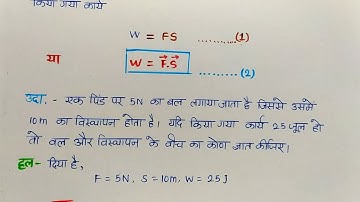 किया गया कार्य
W = FS ......... (1)
या
W = F⃗.S⃗ ......... (2)
उदा. - एक पिंड पर 5N का बल लगाया जाता है जिससे उसमें
10m का विस्थापन होता है। यदि किया गया कार्य 25 जूल हो
तो बल और विस्थापन के बीच का कोण ज्ञात कीजिए।
हल - दिया है,
F = 5N, S = 10m, W = 25 J